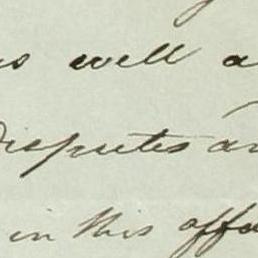 well a
disputes an
in this affa